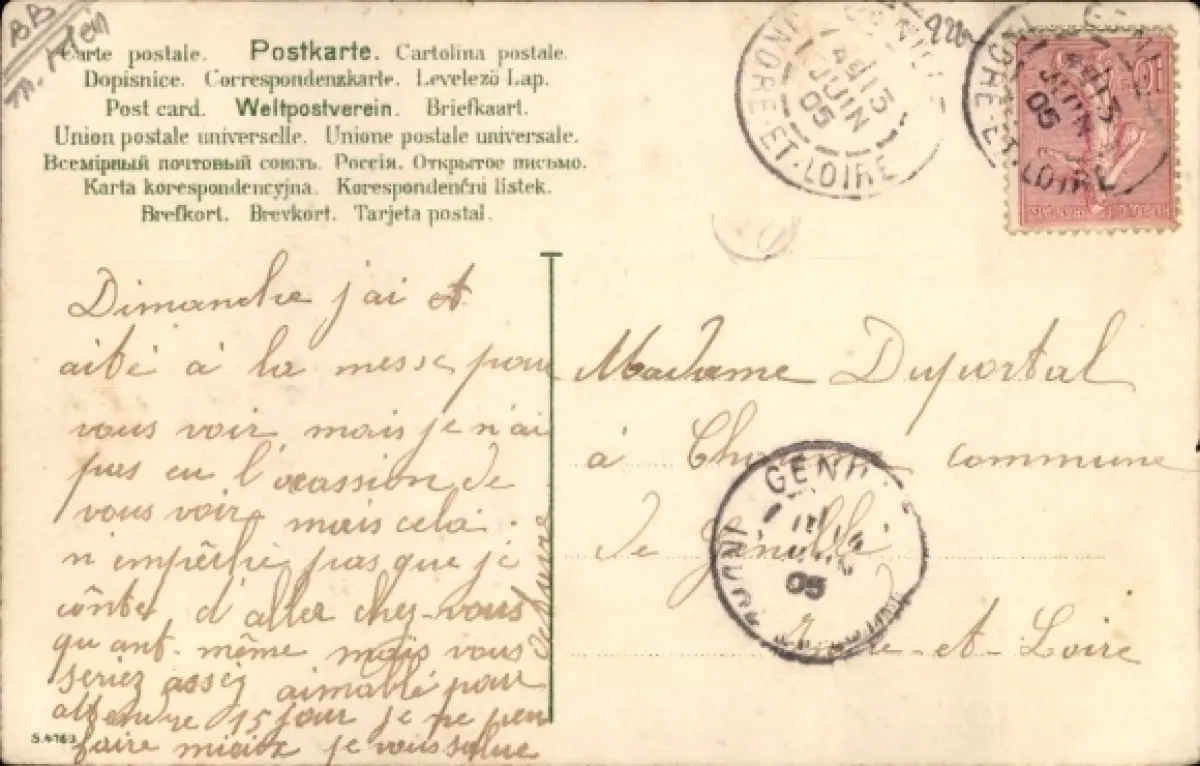 BB
Carte postale. Postkarte. Cartolina postale.
Dopisnice. Correspondenzkarte. Levelezö Lap.
Post card. Weltpostverein. Briefkaart.
Union postale universelle. Unione postale universale.
Всемірный почтовый союзъ. Россія. Открытое письмо.
Karta korespondencyjna. Korespondenční listek.
Brefkort. Brevkort. Tarjeta postal.
INDRE-ET-LOIRE
15
JUIN
05
INDRE-ET-LOIRE
15
JUIN
05
10
Dimanche j'ai et
aité à la messe pour
vous voir mais je n'ai
pas eu l'ocassion de
vous voir mais cela
n'impêche pas que je
cônte d'aller chez-vous
quant-même mais vous
seriez assez aimable pour
attendre 15 jour je ne peu
faire mieux je vous salue
Madame Duportal
à commune
de Genillé
Indre-et-Loire
GENILLÉ
05
S.4763